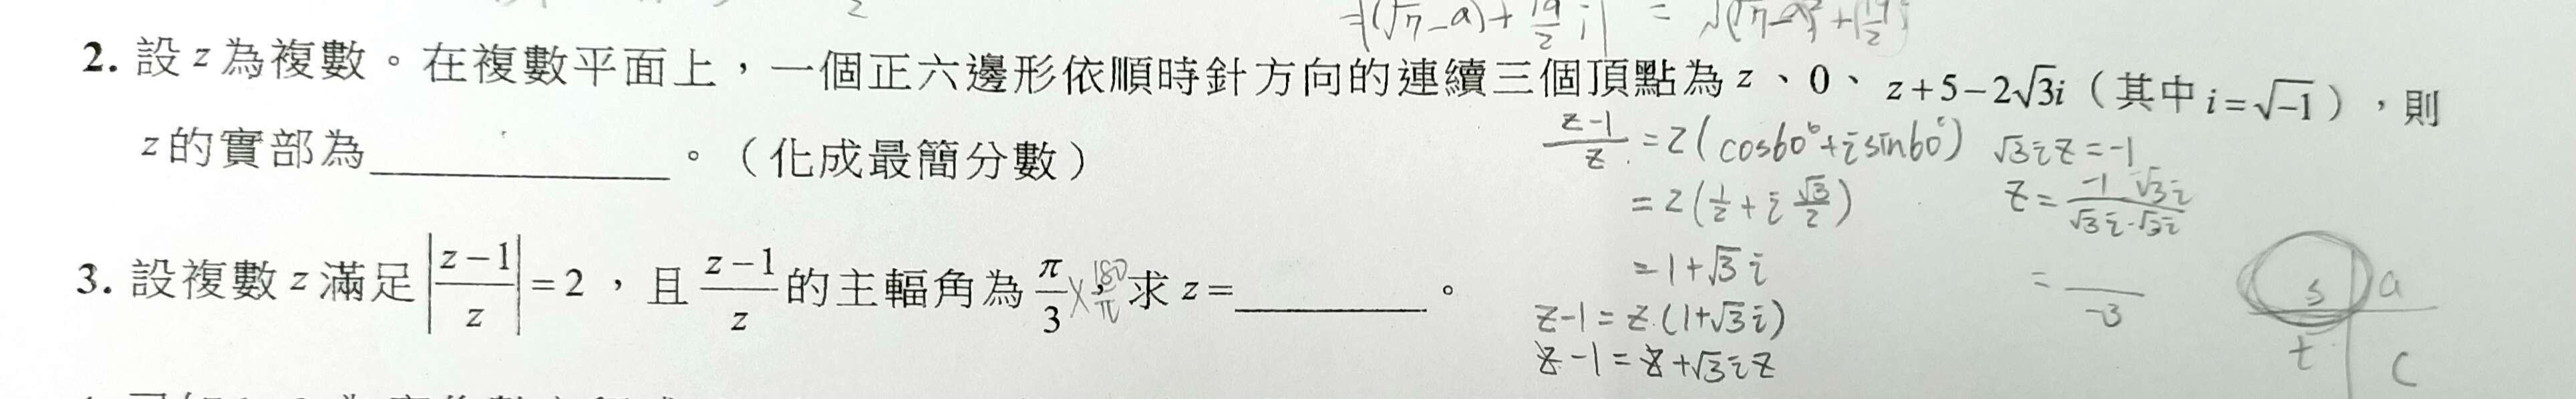 =|(√7-a)+19/2 i| = √(√7-a)²+(19/2)²
2. 設 z 為複數。在複數平面上，一個正六邊形依順時針方向的連續三個頂點為 z、0、z+5-2√3i（其中 i=√-1），則
z 的實部為__________。（化成最簡分數）
3. 設複數 z 滿足 |z-1/z|=2，且 z-1/z 的主輻角為 π/3，求 z=__________。
×180/π
z-1/z=2(cos60°+isin60°)
=2(1/2+i√3/2)
=1+√3i
z-1=z·(1+√3i)
z-1=z+√3iz
√3iz=-1
z=-1 √3i/√3i·√3i
= /-3
s a
t c